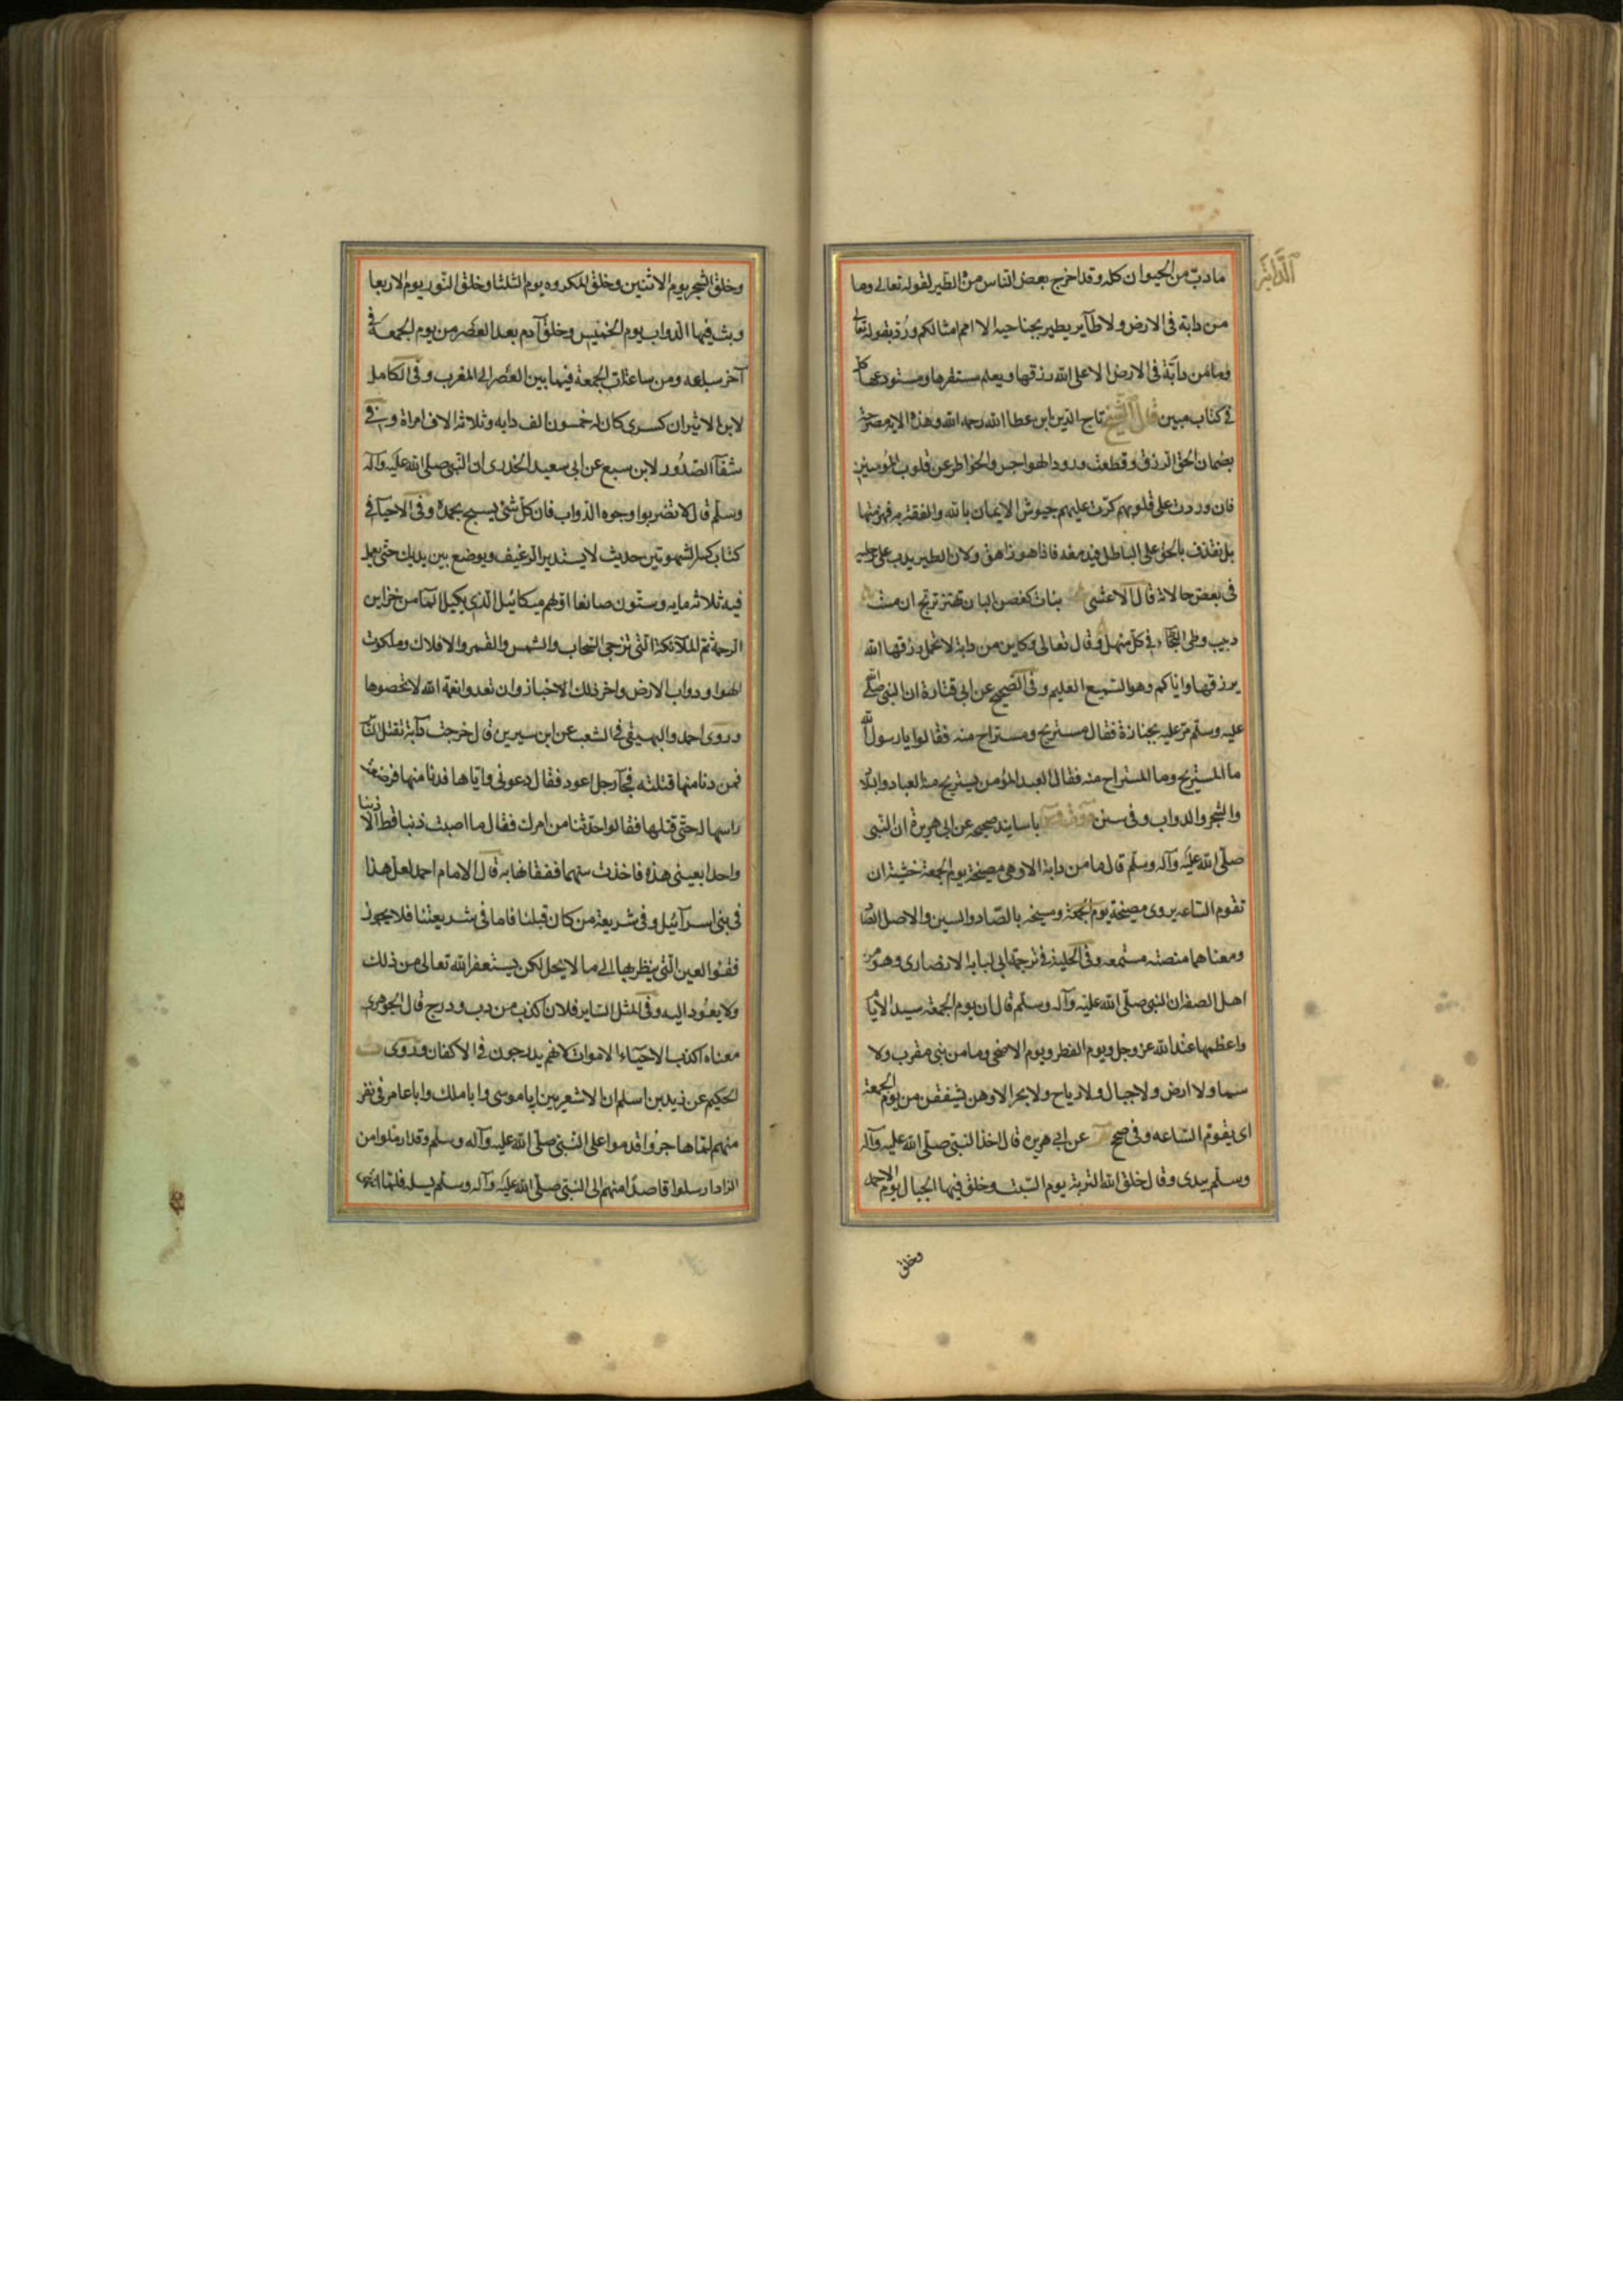 الدابة
ما دب من الحيوان كله وقد اخرج بعض الناس منه الطير لقوله تعالى وما
من دابة فى الارض ولا طآير يطير بجناحيه الا امم امثالكم ورد بقوله تعالى
وما من دآبة فى الارض الا على الله رزقها ويعلم مستقرها ومستودعها كل
فى كتاب مبين قال الشيخ تاج الدين ابن عطا الله رحمه الله وهذه الايه مصرحة
بضمان الحق الرزق وقطعت ورود الهواجس والخواطر عن قلوب المومنين
فان وردت على قلوبهم كرت عليهم جيوش الايمان بالله والثقة به فهزمتها
بل نقذف بالحق على الباطل فيدمغه فاذا هو زاهق ولان الطير يدب على رجليه
فى بعض حالاته قال الاعشى نبات كغصن البان تهتز ترتج ان مشت
دبيب وطى البطحا فى كل منهل وقال تعالى وكاين من دابة لا تحمل رزقها الله
يرزقها واياكم وهو السميع العليم وفى الصحيح عن ابى قتادة ان النبى صلى
عليه وسلم مر عليه بجنازة فقال مستريح ومستراح منه فقالوا يا رسول الله
ما المستريح وما المستراح منه فقال العبد المؤمن يستريح منه العباد والبلاد
والشجر والدواب وفى سنن باسانيد صحيحه عن ابى هريرة ان النبى
صلى الله عليه وآله وسلم قال ما من دابة الا وهى مصيخة يوم الجمعة خشية ان
تقوم الساعه يروى مصيخة يوم الجمعة ومسيخه بالصاد والسين والاصل الصاد
ومعناهما منصته مستمعه وفى الحلية فى ترجمة ابى لبابة الانصارى وهو من
اهل الصفه ان النبى صلى الله عليه وآله وسلم قال ان يوم الجمعة سيد الايام
واعظمها عند الله عز وجل ويوم الفطر ويوم الاضحى وما من نبى مقرب ولا
سما ولا ارض ولا جبال ولا رياح ولا بحر الا وهن يشفقن من يوم الجمعة
اى يقوم الساعه وفى صحيح عن ابى هريره قال اخذ النبى صلى الله عليه وآله
وسلم بيدى وقال خلق الله التربة يوم السبت وخلق فيها الجبال يوم الاحد
وخلق
وخلق الشجر يوم الاثنين وخلق المكروه يوم الثلثا وخلق النور يوم الاربعا
وبث فيها الدواب يوم الخميس وخلق آدم بعد العصر من يوم الجمعة فى
آخر ساعه ومن ساعات الجمعة فيما بين العصر الى المغرب وفى الكامل
لابن الاثير ان كسرى كان له خمسون الف دابه وثلاثة الاف امراة وفى
شفآ الصدور لابن سبع عن ابى سعيد الخدرى ان النبى صلى الله عليه وآله
وسلم قال لا تضربوا وجوه الدواب فان كل شئ يسبح بحمده وفى الاحيآ فى
كتاب كسر الشهوتين حديث لا يستدير الرغيف ويوضع بين يديك حتى يعمل
فيه ثلاثمايه وستون صانعا اولهم ميكائيل الذى يكيل المآ من خزاين
الرحمة ثم الملآئكة التى تزجى السحاب والشمس والقمر والافلاك وملكوت
الهوا ودواب الارض واخر ذلك الاخباز وان تعدوا نعمة الله لا تحصوها
وروى احمد والبيهقى فى الشعب عن ابن سيرين قال خرجت دآبة تقتل الناس
فمن دنا منها قتلته فجآ رجل اعور فقال دعونى واياها فدنا منها فوضعت
راسها له حتى قتلها فقالوا حدثنا من امرك فقال ما اصبت ذنبا قط الا ذنبا
واحدا بعينى هذه فاخذت سهما ففقاتها به قال الامام احمد لعل هذا
فى بنى اسرآئيل وفى شريعة من كان قبلنا فاما فى شريعتنا فلا يجوز
فقئوا العين التى ينظر بها الى ما لا يحل لكن يستغفر الله تعالى من ذلك
ولا يعود اليه وفى المثل الساير فلان اكذب من دب ودرج قال الجوهرى
معناه اكذب الاحياء والاموات لانهم يدرجون فى الاكفان وروى
الحكيم عن زيد بن اسلم ان الاشعريين ابا موسى وابا ملك وابا عامر فى نفر
منهم لما هاجروا قدموا على النبى صلى الله عليه وآله وسلم وقد ارملوا من
الزاد ارسلوا قاصدا منهم الى النبى صلى الله عليه وآله وسلم يسله فلما انتهى